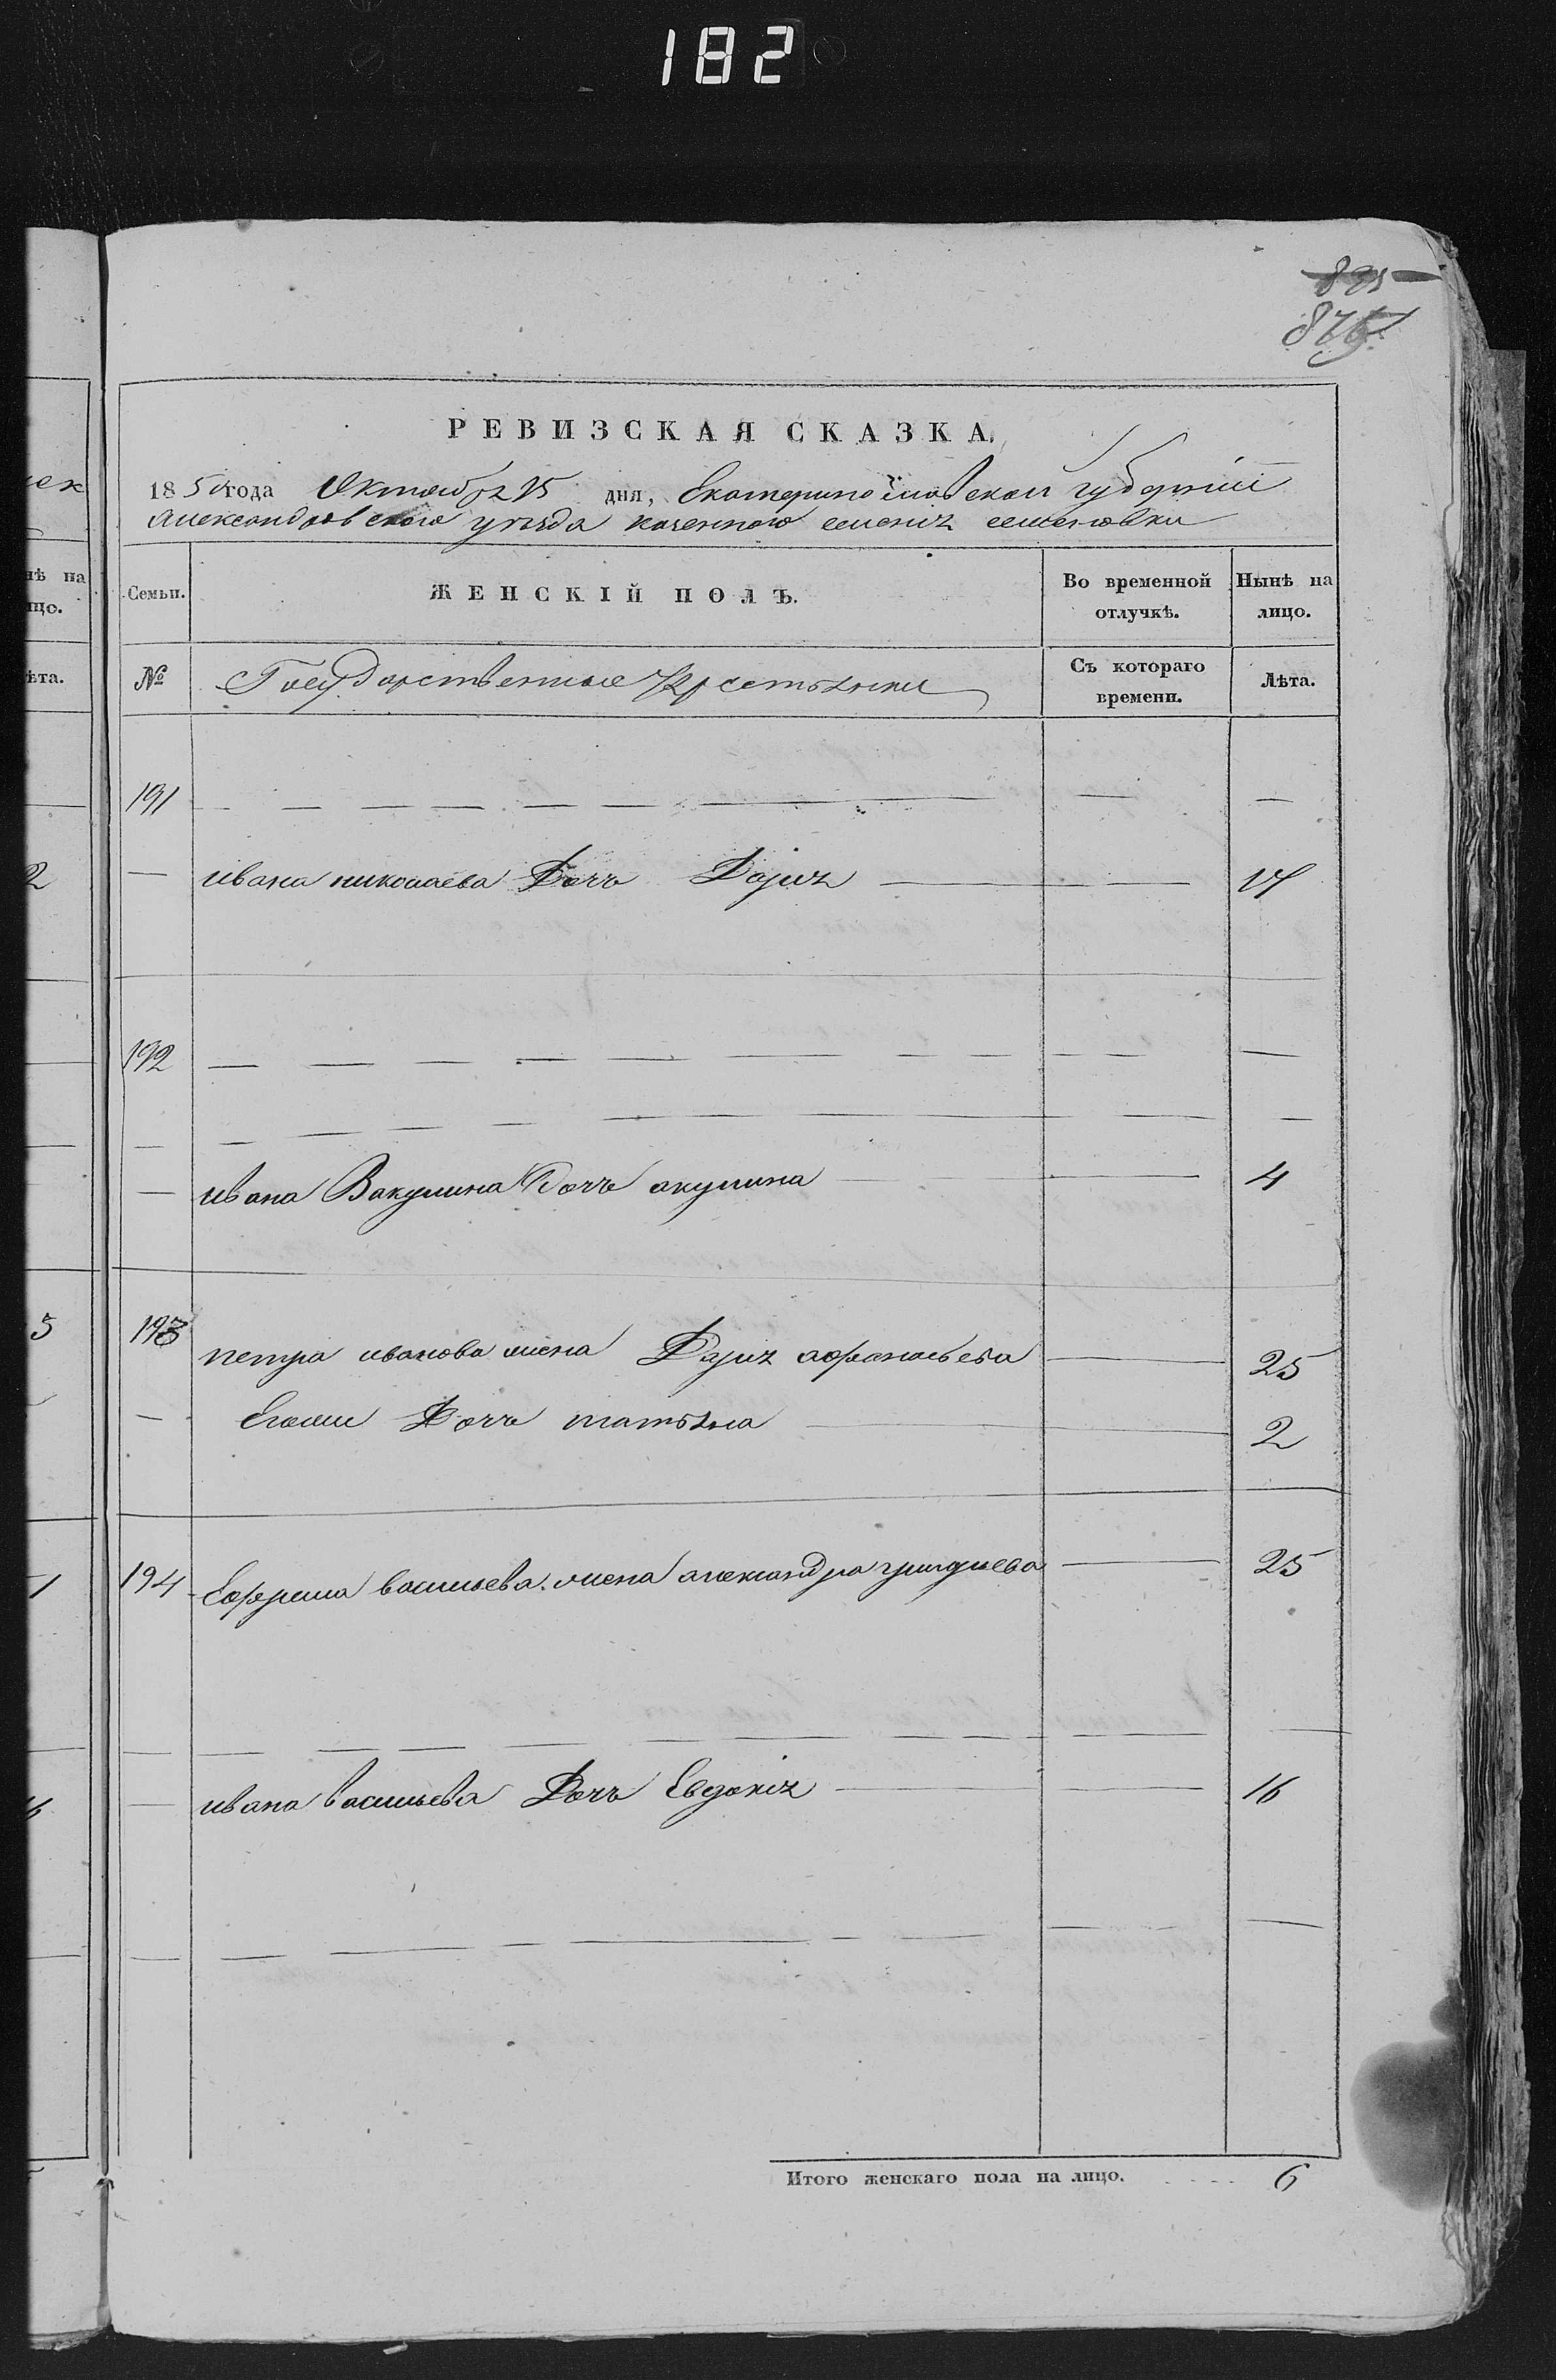 182
835
876
РЕВИЗСКАЯ СКАЗКА.
1850 года Октября 25 дня, Екатеринославской губерніи
Александровского уезда казенного селенія семеновки
Семьи. ЖЕНСКІЙ ПОЛЪ. Во временной отлучкѣ. Нынѣ на лицо.
№ Государственные Крестьянки Съ котораго времени. Лѣта.
191 — — —
— ивана николаева Дочь Дарія — 17
192 — — —
— — — —
— ивана Вакулина Дочь акулина — 4
193 петра иванова жена Дарія афанасьева — 25
— Егоже Дочь татьяна — 2
194 Ефрема васильева жена александра григорьева — 25
— — — —
— ивана васильева Дочь Евдокія — 16
— — — —
Итого женскаго пола на лицо. 6